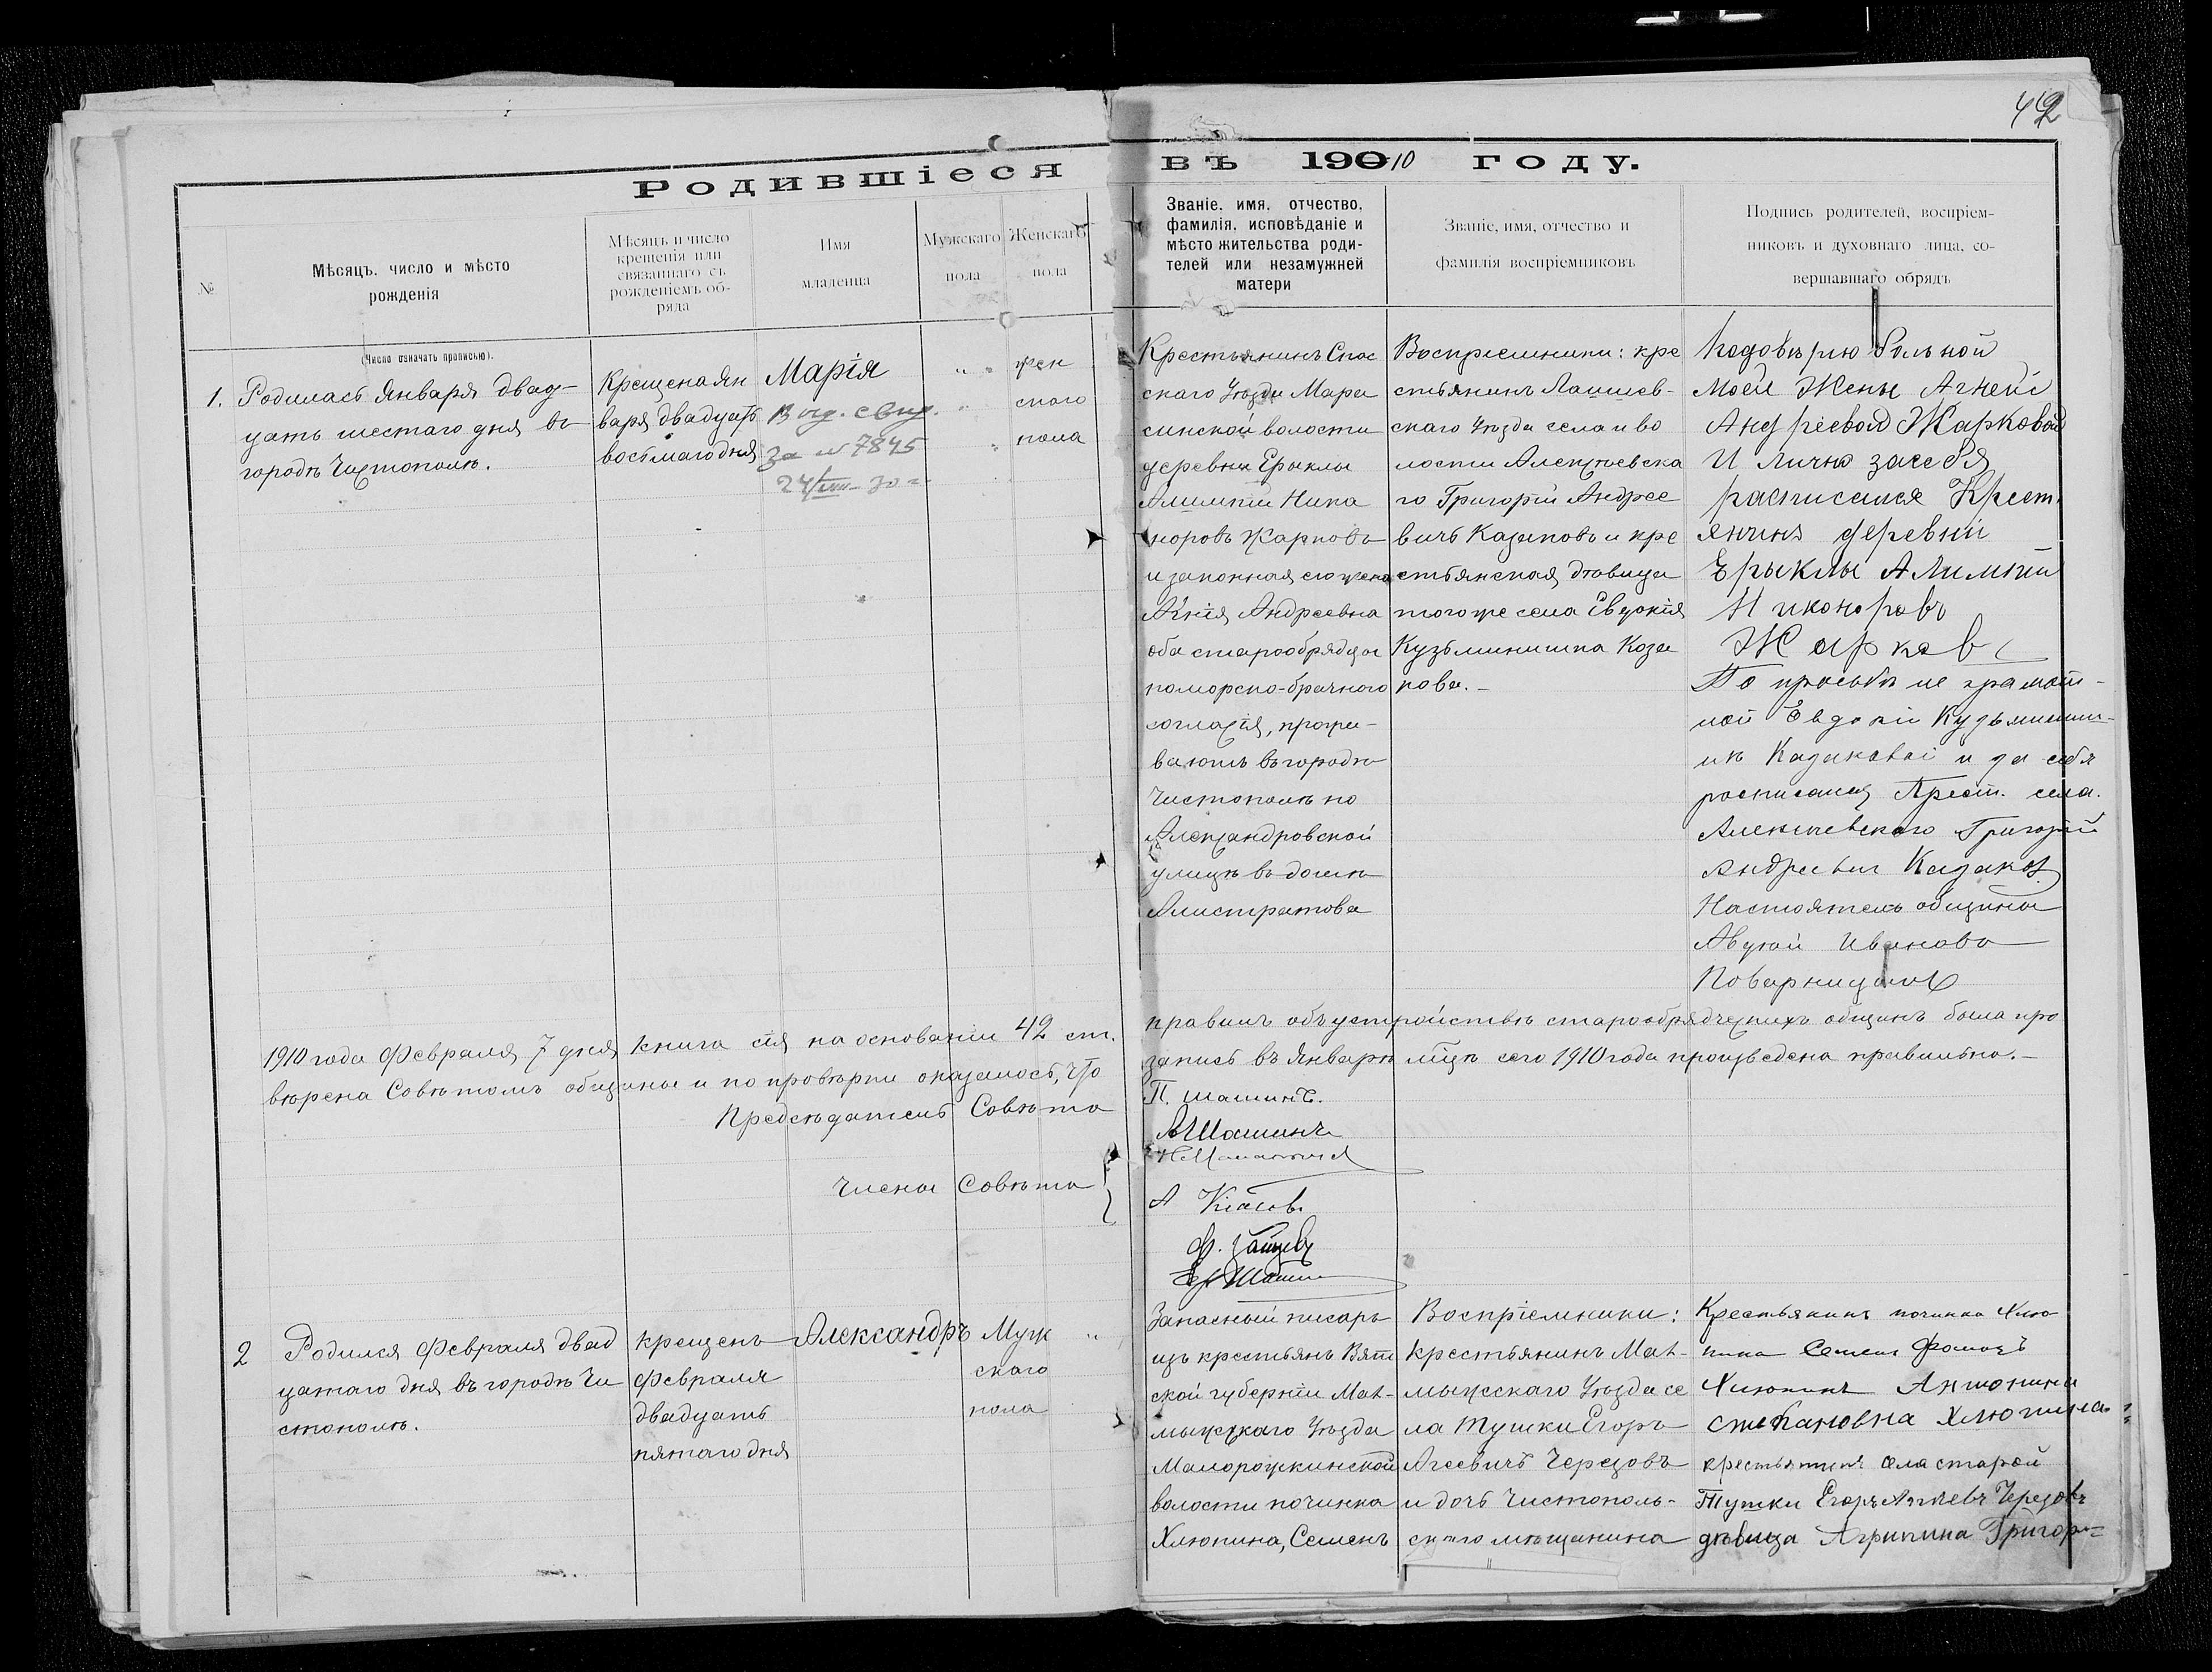 42
Родившіеся въ 190 10 году.
№
Мѣсяцъ, число и мѣсто
рожденія
Мѣсяцъ и число
крещенія или
связаннаго съ
рожденіемъ об-
ряда
Имя
младенца
Мужскаго
пола
Женскаго
пола
Званіе, имя, отчество,
фамилія, исповѣданіе и
мѣсто жительства роди-
телей или незамужней
матери
Званіе, имя, отчество и
фамилія воспріемниковъ
Подпись родителей, воспріем-
никовъ и духовнаго лица, со-
вершавшаго обрядъ
(Число означать прописью).
1.
Родилась Января двад-
цать шестаго дня въ
городѣ Чистополѣ.
Крещена Ян
варя двадцать
восьмаго дня
Марія
Выд. свид.
за № 7845
24/VIII 30 г.
жен
скаго
пола
Крестьянинъ Спас
скаго Уѣзда Мара
синской волости
деревни Ерыклы
Алимпій Ника
норовъ Жарковъ
и законная его жена
Агнія Андреевна
оба старообрядцы
поморско-брачного
согласія, прожи-
ваютъ въ городѣ
Чистополѣ по
Александровской
улицѣ въ домѣ
Алистратова
Воспріемники: кре
стьянинъ Лаишев-
скаго Уѣзда села и во
лости Алексѣевска
го Григорій Андрее
вичъ Казаковъ и кре
стьянская дѣвица
того же села Евдокія
Кузьминишна Коза
кова.-
По довѣрію больной
моей Жены Агнеи
Андреевой Жарковой
И лично за себя
расписался Крест.
янинъ деревни
Ерыклы Алимпій
Никоноровъ
Жарковъ
По просьбѣ не грамот-
ной Евдокіи Кузьминиш-
нѣ Казаковой и за себя
росписался Крест. села.
Алексѣевского Григорій
Андреевич Казаков
Настоятель общины
Авдѣй Ивановъ
Поварницынъ
1910 года Февраля 7 дня книга сія на основаніи 42 ст. правилъ объ устройствѣ старообрядческихъ общинъ была про
вѣрена Совѣтомъ общины и по провѣрки оказалось, что запись въ Январѣ мцѣ сего 1910 года произведена правильно.-
Предсѣдатель Совѣта П. Шашинъ.
Члены Совѣта
А Шашинъ
А Кіасов.
Ф. Зайцевъ
2
Родился Февраля двад
цатаго дня въ городѣ Чи
стополѣ.
крещенъ
Февраля
двадцать
пятаго дня
Александръ
Муж
скаго
пола
Запасный писарь
изъ крестьянъ Вят
ской губерніи Мал-
мыжскаго Уѣзда
Малорожкинской
волости починка
Хлюпина, Семенъ
Воспріемники:
крестьянинъ Мал-
мыжскаго Уѣзда се
ла Тушки Егоръ
Агеевичъ Черезовъ
и дочь Чистополь-
скаго мѣщанина
Крестьянинъ починка Хлю
пина Семенъ Фомичъ
Хлюпинъ Антонина
Степановна Хлюпина
крестьянинъ села старой
Тушки Егоръ Агѣевъ Черезовъ
дѣвица Агрипина Григорь=